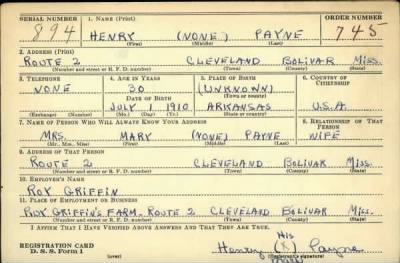 SERIAL NUMBER 1. NAME (Print) ORDER NUMBER
894 HENRY (NONE) PAYNE 745
(First) (Middle) (Last)
2. ADDRESS (Print)
ROUTE 2 CLEVELAND BOLIVAR MISS.
(Number and street or R. F. D. number) (Town) (County) (State)
3. TELEPHONE 4. AGE IN YEARS 5. PLACE OF BIRTH 6. COUNTRY OF CITIZENSHIP
NONE 30 (UNKNOWN)
DATE OF BIRTH (Town or county)
JULY 1 1910 ARKANSAS U.S.A.
(Exchange) (Number) (Mo.) (Day) (Yr.) (State or country)
7. NAME OF PERSON WHO WILL ALWAYS KNOW YOUR ADDRESS 8. RELATIONSHIP OF THAT PERSON
MRS. MARY (NONE) PAYNE WIFE
(Mr., Mrs., Miss) (First) (Middle) (Last)
9. ADDRESS OF THAT PERSON
ROUTE 2 CLEVELAND BOLIVAR MISS.
(Number and street or R. F. D. number) (Town) (County) (State)
10. EMPLOYER'S NAME
ROY GRIFFIN
11. PLACE OF EMPLOYMENT OR BUSINESS
ROY GRIFFIN'S FARM. ROUTE 2 CLEVELAND BOLIVAR MISS.
(Number and street or R. F. D. number) (Town) (County) (State)
I AFFIRM THAT I HAVE VERIFIED ABOVE ANSWERS AND THAT THEY ARE TRUE.
HIS
REGISTRATION CARD Henry (X) Payne
D. S. S. Form 1 (over) (Registrant's signature)
MARK